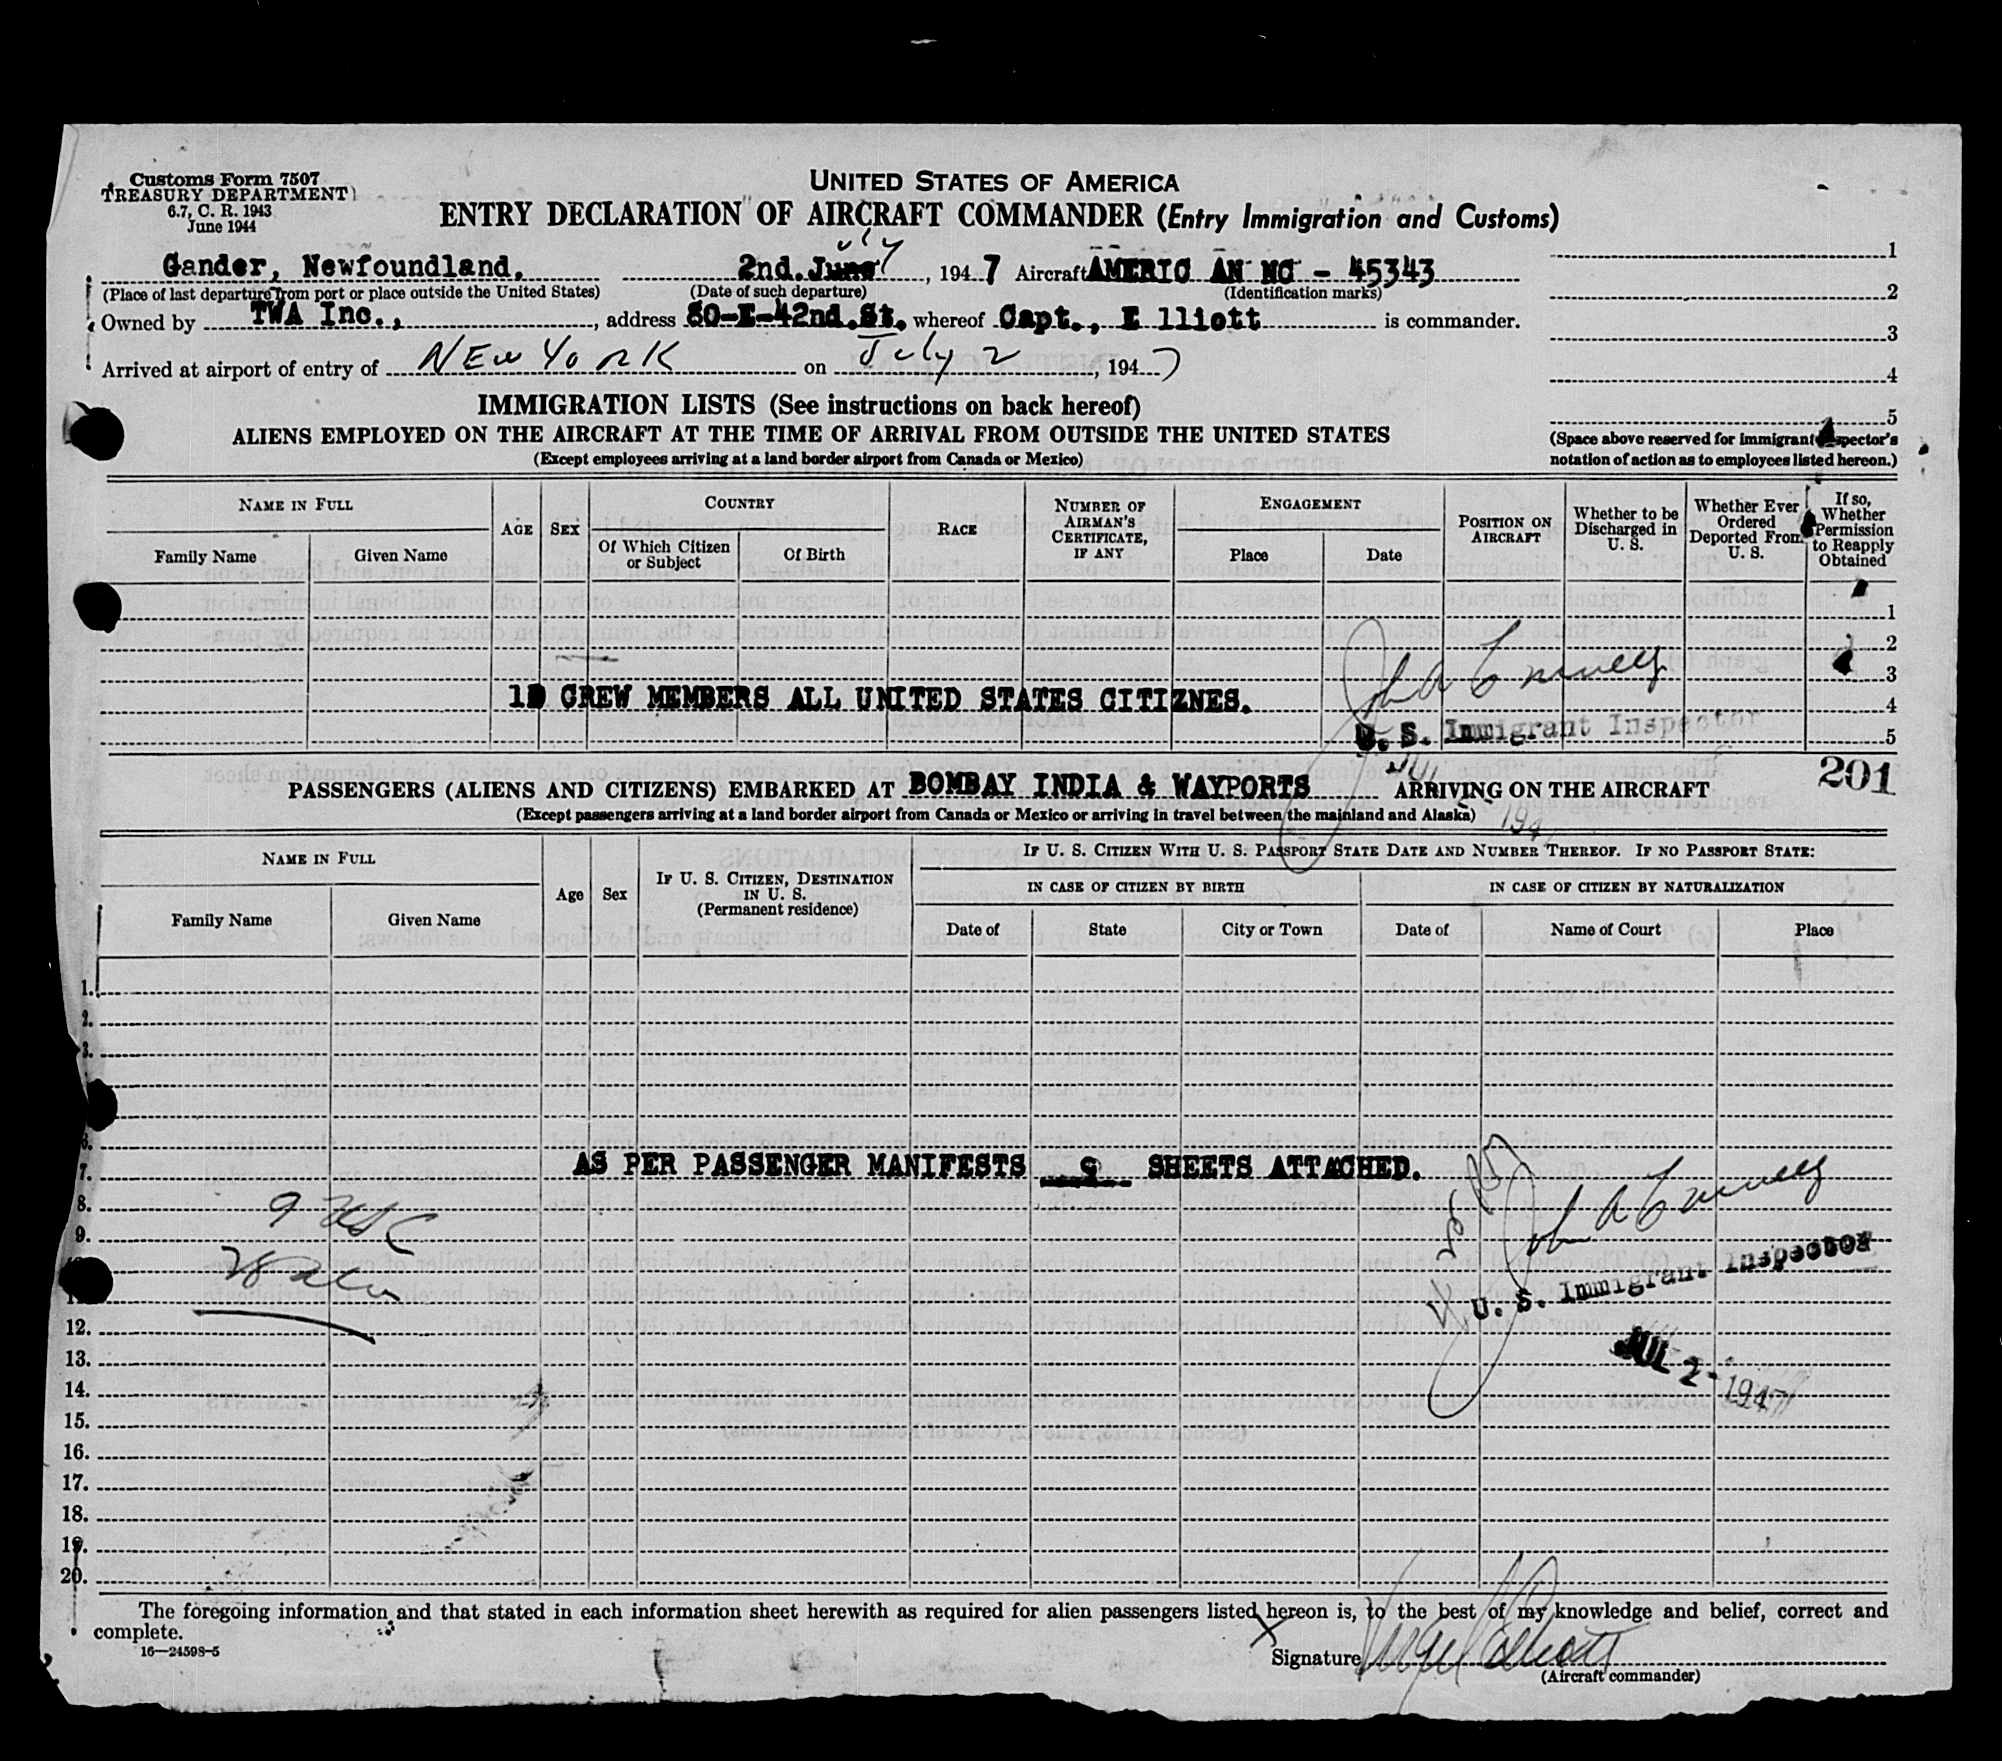 Customs Form 7507
TREASURY DEPARTMENT
6.7, C. R. 1943
June 1944
UNITED STATES OF AMERICA
ENTRY DECLARATION OF AIRCRAFT COMMANDER (Entry Immigration and Customs)
Gander, Newfoundland. 2nd. July, 1947 Aircraft AMERIC AN NC - 45343
(Place of last departure from port or place outside the United States) (Date of such departure) (Identification marks)
Owned by TWA Inc., address 80-E-42nd.St. whereof Capt., E lliott is commander.
Arrived at airport of entry of NEW YORK on July 2, 1947
1
2
3
4
5
(Space above reserved for immigrant inspector's
notation of action as to employees listed hereon.)
IMMIGRATION LISTS (See instructions on back hereof)
ALIENS EMPLOYED ON THE AIRCRAFT AT THE TIME OF ARRIVAL FROM OUTSIDE THE UNITED STATES
(Except employees arriving at a land border airport from Canada or Mexico)
NAME IN FULL
Family Name Given Name
AGE
SEX
COUNTRY
Of Which Citizen or Subject Of Birth
RACE
NUMBER OF AIRMAN'S CERTIFICATE, IF ANY
ENGAGEMENT
Place Date
POSITION ON AIRCRAFT
Whether to be Discharged in U. S.
Whether Ever Ordered Deported From U. S.
If so, Whether Permission to Reapply Obtained
1
2
3
CREW MEMBERS ALL UNITED STATES CITIZNES. 4
U. S. Immigrant Inspector 5
JUL
201
PASSENGERS (ALIENS AND CITIZENS) EMBARKED AT BOMBAY INDIA & WAYPORTS ARRIVING ON THE AIRCRAFT
(Except passengers arriving at a land border airport from Canada or Mexico or arriving in travel between the mainland and Alaska)
NAME IN FULL
Family Name Given Name
Age
Sex
IF U. S. CITIZEN, DESTINATION IN U. S.
(Permanent residence)
IF U. S. CITIZEN WITH U. S. PASSPORT STATE DATE AND NUMBER THEREOF. IF NO PASSPORT STATE:
IN CASE OF CITIZEN BY BIRTH IN CASE OF CITIZEN BY NATURALIZATION
Date of State City or Town Date of Name of Court Place
1.
2.
3.
6.
7. AS PER PASSENGER MANIFESTS 9 SHEETS ATTACHED.
8. 9 USC
9.
U. S. Immigrant Inspector
12.
13. JUL 2 - 1947
14.
15.
16.
17.
18.
19.
20.
The foregoing information and that stated in each information sheet herewith as required for alien passengers listed hereon is, to the best of my knowledge and belief, correct and
complete.
16—24598-5
X
Signature
(Aircraft commander)